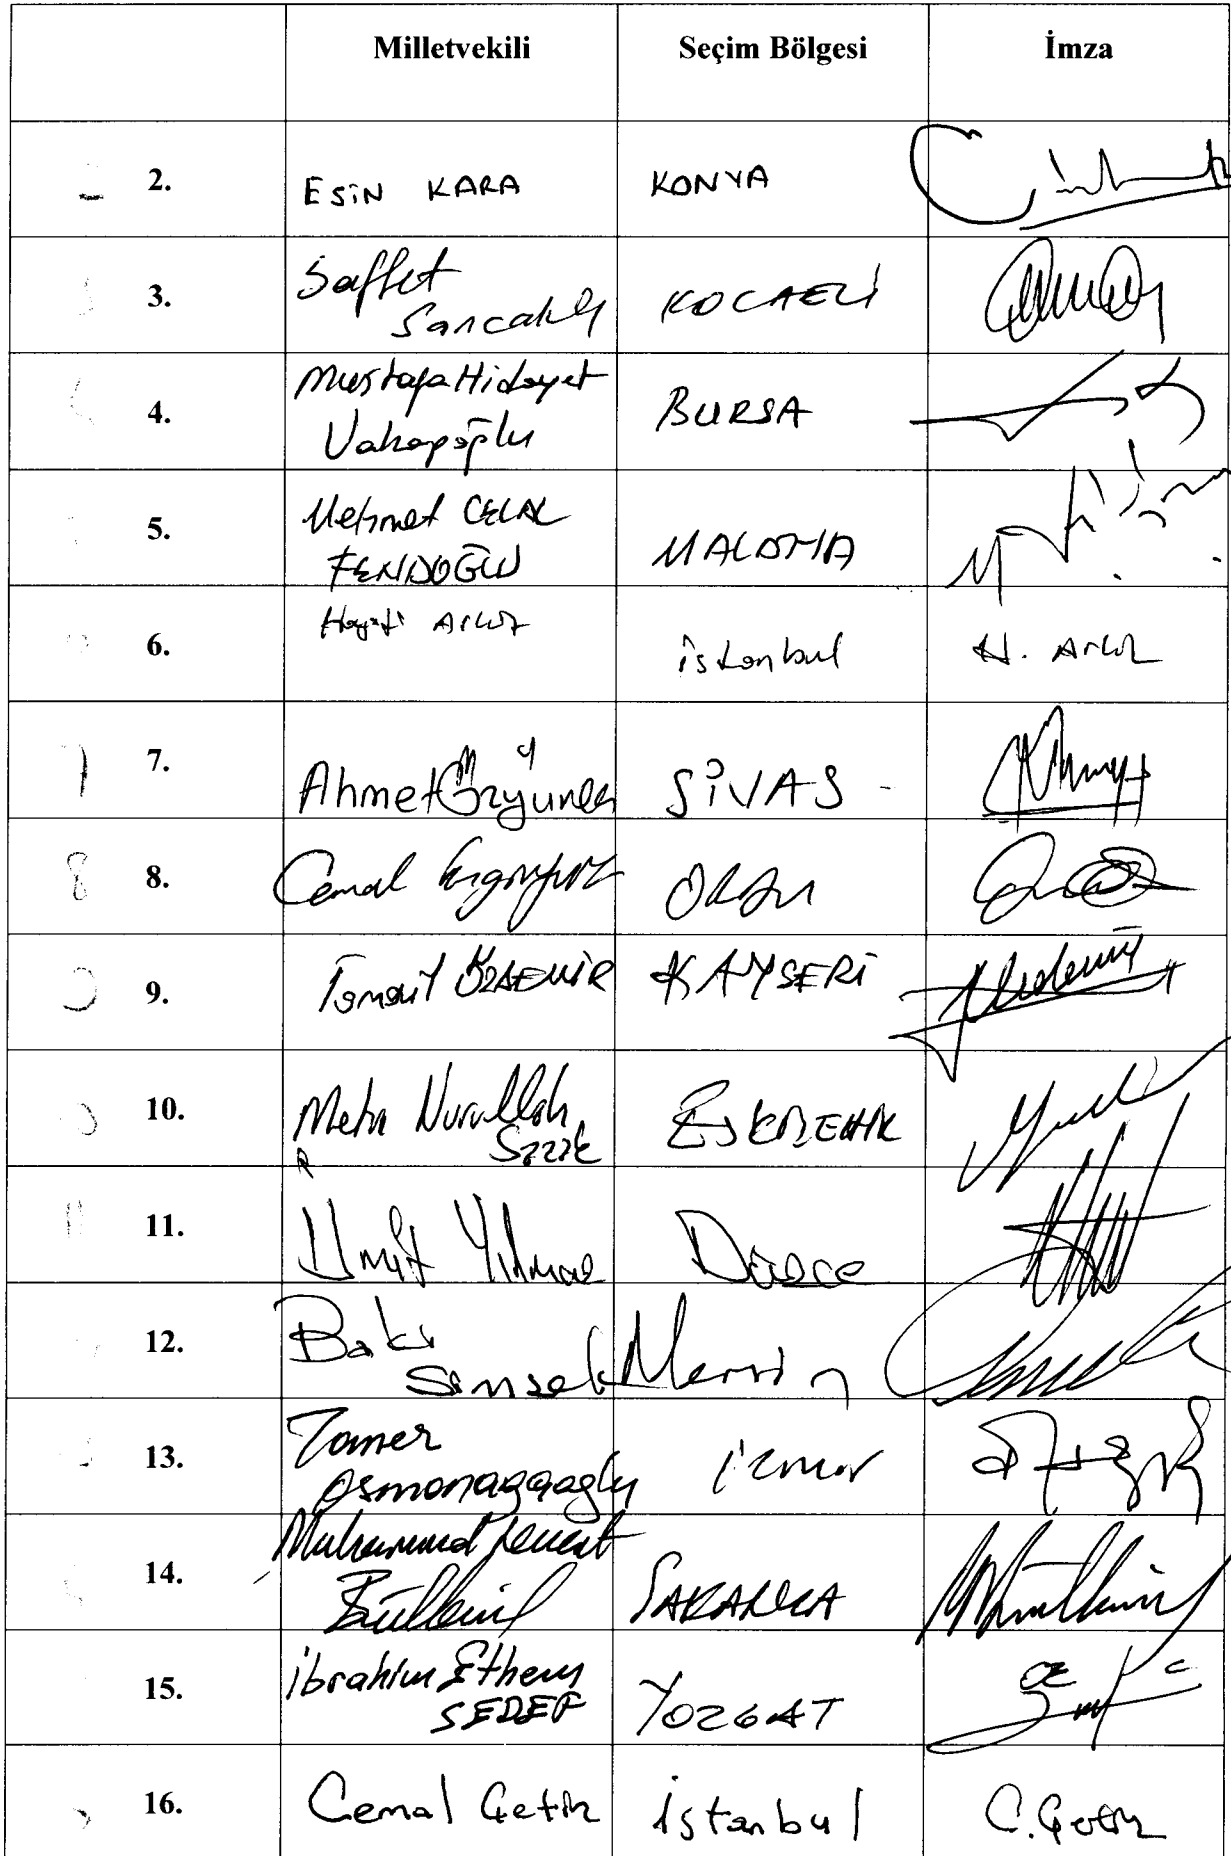 Milletvekili Seçim Bölgesi İmza
2. ESİN KARA KONYA
3. Saffet Sancaklı KOCAELİ
4. Mustafa Hidayet Vahapoğlu BURSA
5. Mehmet CELAL FENDOĞLU MALATYA
6. Hayati ARKAZ istanbul H. ARKAZ
7. Ahmet Özyürek SİVAS
8. Cemal Enginyurt ORDU
9. İsmail ÖZDEMİR KAYSERİ
10. Metin Nurullah Sazak ESKİŞEHİR
11. Ümit Yılmaz Düzce
12. Baki Şimşek Mersin
13. Tamer Osmanağaoğlu İzmir
14. Muhammed Levent Bülbül SAKARYA
15. İbrahim Ethem SEDEF YOZGAT
16. Cemal Çetin İstanbul C. Çetin